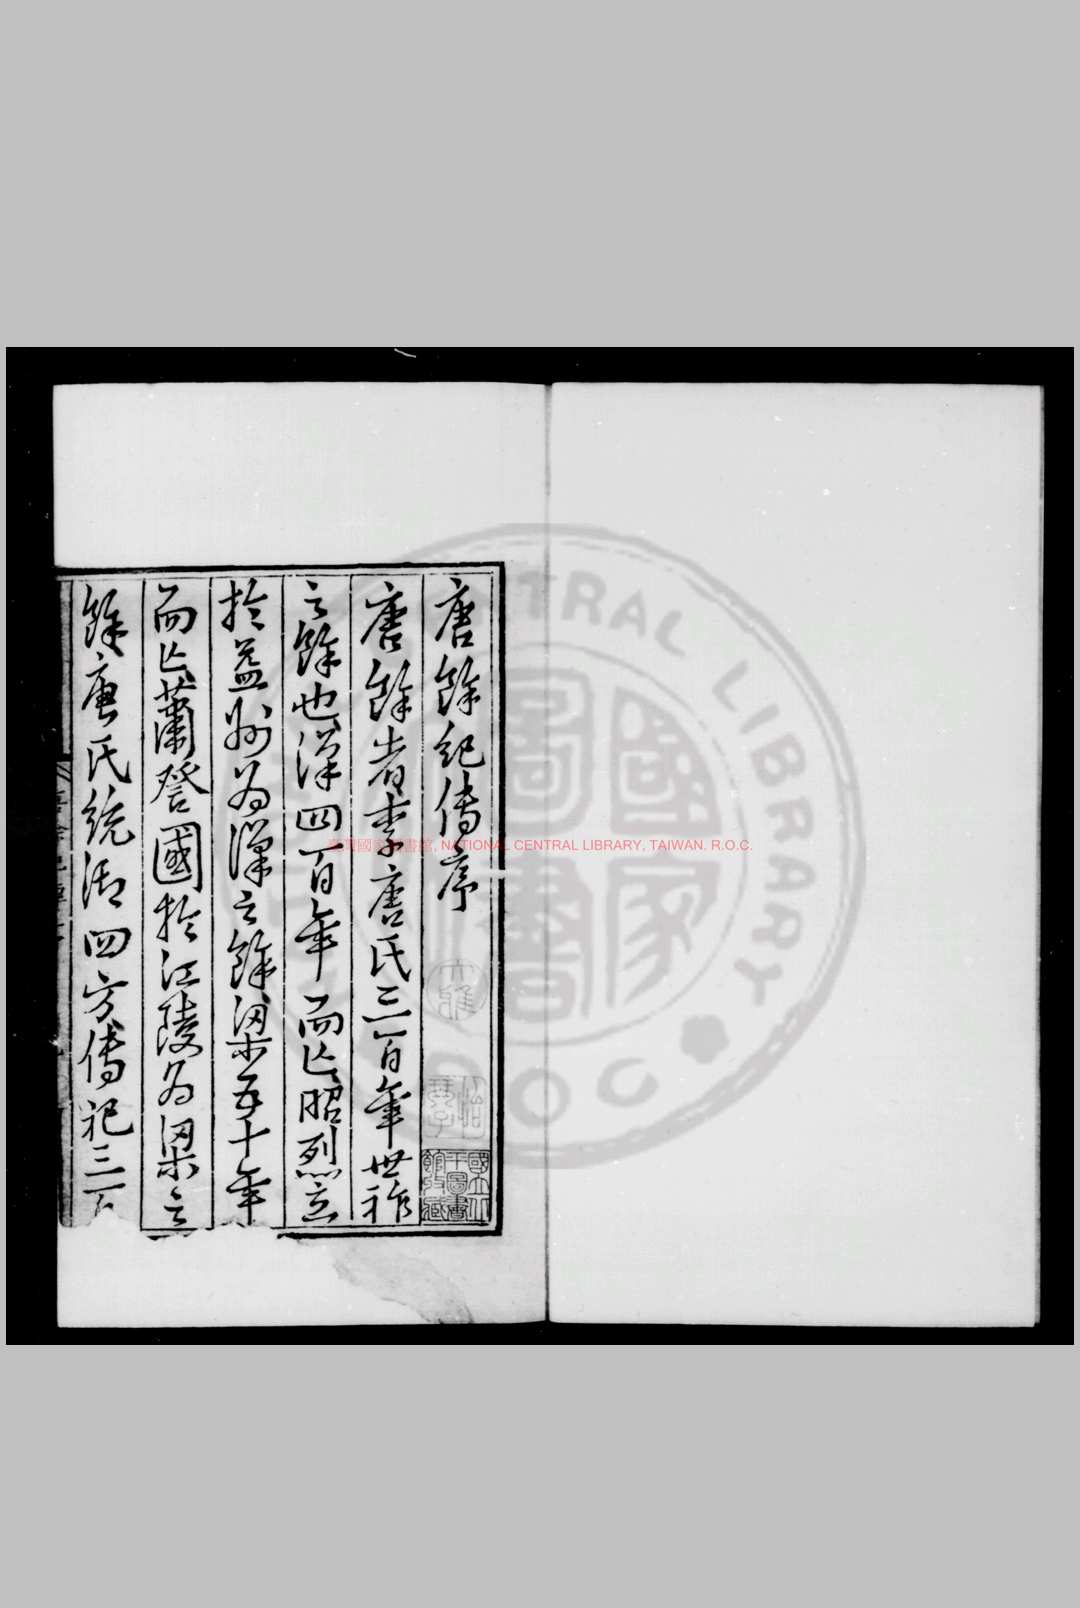 唐餘紀傳序
唐餘者李唐氏三百年世祚
之餘也漢四百年而亡昭烈立
於益州為漢之餘梁五十年
而亡蕭詧國於江陵為梁之
餘唐氏統御四方傳祀三百
國立北
平圖書
館收藏
臺灣國家圖書館, NATIONAL CENTRAL LIBRARY, TAIWAN. R.O.C.
CENTRAL LIBRARY
R.O.C.
國家
圖書